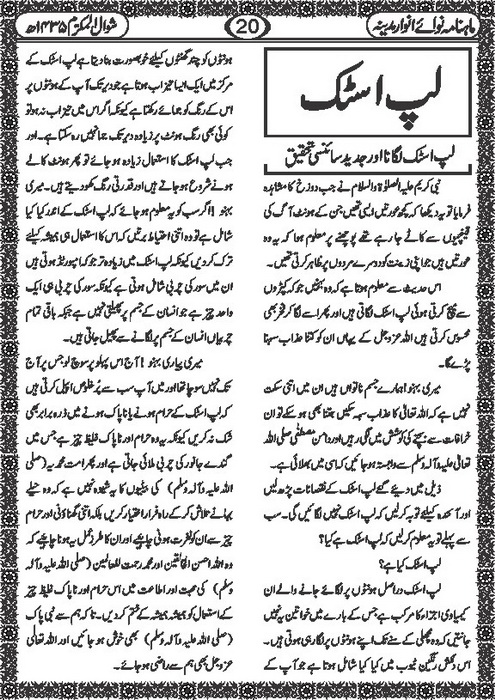 ماہنامہ نوائے انوار مدینہ
20
شوال المکرم ۱۴۳۵ھ
لپ اسٹک
لپ اسٹک لگانا اور جدید سائنسی تحقیق
نبی کریم علیہ الصلوٰۃ والسلام نے جب دوزخ کا مشاہدہ
فرمایا تو یہ دیکھا کہ کچھ عورتیں ایسی تھیں جن کے ہونٹ آگ کی
قینچیوں سے کاٹے جا رہے تھے پوچھنے پر معلوم ہوا کہ یہ وہ
عورتیں ہیں جو اپنی زینت کو دوسرے مردوں پر ظاہر کرتی تھیں۔
اس حدیث سے معلوم ہوتا ہے کہ وہ بہنیں جو کپڑوں
سے میچ کرتی ہوئی لپ اسٹک لگاتی ہیں اور پھر اسے لگا کر فخر بھی
محسوس کرتی ہیں اللہ عزوجل کے یہاں ان کو کتنا عذاب سہنا
پڑے گا۔
میری بہنو! ہمارے جسم ناتواں ہیں ان میں اتنی سکت
نہیں ہے کہ اللہ تعالیٰ کا عذاب سہہ سکیں جتنا بھی ہو سکے تو ان
خرافات سے بچنے کی کوشش میں لگی رہیں اور دامن مصطفٰی صلی اللہ
تعالیٰ علیہ وآلہ وسلم سے وابستہ ہو جائیں کہ اسی میں بھلائی ہے۔
ذیل میں دیئے گئے لپ اسٹک کے نقصانات پڑھ لیں
اور آئندہ کیلئے توبہ کر لیں کہ لپ اسٹک نہیں لگائیں گی۔ سب
سے پہلے تو یہ معلوم کر لیں کہ لپ اسٹک ہے کیا؟
لپ اسٹک کیا ہے؟
لپ اسٹک دراصل ہونٹوں پر لگائے جانے والے ان
کیمیاوی اجزاء کا مرکب ہے جس کے بارے میں خواتین یہ نہیں
جانتیں کہ وہ پچھلی کے سنے تک اپنے ہونٹوں پر لگا رہی ہوتی ہیں۔
اس بعض رنگین ٹیوب میں کیا کیا شامل ہوتا ہے جو آپ کے
ہونٹوں کو چند گھنٹوں کیلئے خوبصورت بنا دیتا ہے لپ اسٹک کے
مرکز میں ایک ایسا تیزاب ہوتا ہے جو دیر تک آپ کے ہونٹوں پر
اس کے رنگ کو جمائے رکھتا ہے کیونکہ اگر اس میں تیزاب نہ ہو تو
کوئی بھی رنگ ہونٹ پر زیادہ دیر تک جما نہیں رہ سکتا ہے۔ اور
جب لپ اسٹک کا استعمال زیادہ ہو جائے تو پھر ہونٹ کالے
ہونے شروع ہو جاتے ہیں اور قدرتی رنگ کھو دیتے ہیں۔ میری
بہنو! اگر سب کو یہ معلوم ہو جائے کہ لپ اسٹک کے اندر کیا کیا
شامل ہے تو وہ اتنی احتیاط برتیں کہ اس کا استعمال ہی ہمیشہ کیلئے
ترک کر دیں کیونکہ لپ اسٹک میں زیادہ تر جو کہ امپورٹڈ ہوتی ہیں
ان میں سور کی چربی شامل ہوتی ہے کیونکہ سور کی چربی ہی ایک
واحد چیز ہے جو انسان کے جسم پر پھیلتی نہیں ہے جبکہ باقی تمام
چربیاں انسان کے جسم پر لگانے سے پھیل جاتی ہیں۔
میری پیاری بہنو! آج اس پہلو پر سوچ لو جس پر آج
تک نہیں سوچا تھا اور میں آپ سب سے پُرخلوص اپیل کرتی ہیں
کہ لپ اسٹک کے حرام ہونے یا ناپاک ہونے میں ذرہ برابر بھی
شک نہ کریں کیونکہ یہ وہ حرام اور ناپاک غلیظ چیز ہے جس میں
گندے جانور کی چربی ملائی جاتی ہے اور پھر امت محمدیہ (صلی
اللہ علیہ وآلہ وسلم) کی بیٹیوں کا یہ شیوہ نہیں ہے کہ وہ حیلے
بہانے تلاش کر کے راہ فرار اختیار کریں بلکہ اتنی گھناؤنی اور حرام
چیز سے ان کو نفرت ہونی چاہیے اور ان کا طرز عمل یہ ہونا چاہیے کہ
وہ اللہ احسن الخالقین اور محمد رحمت للعالمین (صلی اللہ علیہ وآلہ
وسلم) کی محبت اور اطاعت میں اس حرام اور ناپاک لپ اسٹک
کے استعمال کو ہمیشہ ہمیشہ کے ختم کر دیں۔ تاکہ ہم سے نبی پاک
(صلی اللہ علیہ وآلہ وسلم) بھی خوش ہو جائیں اور اللہ تعالیٰ
عزوجل بھی ہم سے راضی ہو جائے۔